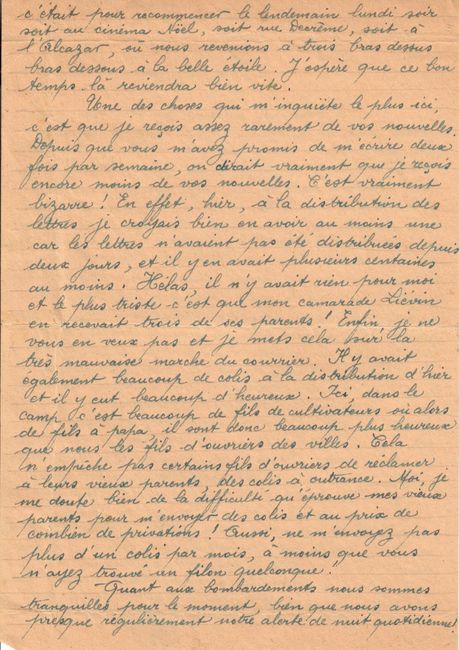 c'était pour recommencer le lendemain lundi soir
soit au cinéma Noël, soit rue Decrême, soit à
l'Alcazar, où nous revenions à trois bras dessus
bras dessous à la belle étoile. J'espère que ce bon
temps-là reviendra bien vite.
Une des choses qui m'inquiète le plus ici,
c'est que je reçois assez rarement de vos nouvelles.
Depuis que vous m'avez promis de m'écrire deux
fois par semaine, on dirait vraiment que je reçois
encore moins de vos nouvelles. C'est vraiment
bizarre ! En effet, hier, à la distribution des
lettres je croyais bien en avoir au moins une
car les lettres n'avaient pas été distribuées depuis
deux jours, et il y en avait plusieurs centaines
au moins. Hélas, il n'y avait rien pour moi
et le plus triste c'est que mon camarade Lievrin
en recevait trois de ses parents ! Enfin je ne
vous en veux pas et je mets cela sur la
très mauvaise marche du courrier. Il y avait
également beaucoup de colis à la distribution d'hier
et il y eut beaucoup d'heureux. Ici, dans le
camp c'est beaucoup de fils de cultivateurs ou alors
de fils à papa, il sont donc beaucoup plus heureux
que nous les fils d'ouvriers des villes. Cela
n'empêche pas certains fils d'ouvriers de réclamer
à leurs vieux parents, des colis à outrance. Moi, je
me doute bien de la difficulté qu'éprouve mes vieux
parents pour m'envoyer des colis et au prix de
combien de privations ! Aussi, ne m'envoyez pas
plus d'un colis par mois, à moins que vous
n'ayez trouvé un filon quelconque !
Quant aux bombardements nous sommes
tranquilles pour le moment, bien que nous avons
presque régulièrement notre alerte de nuit quotidienne !